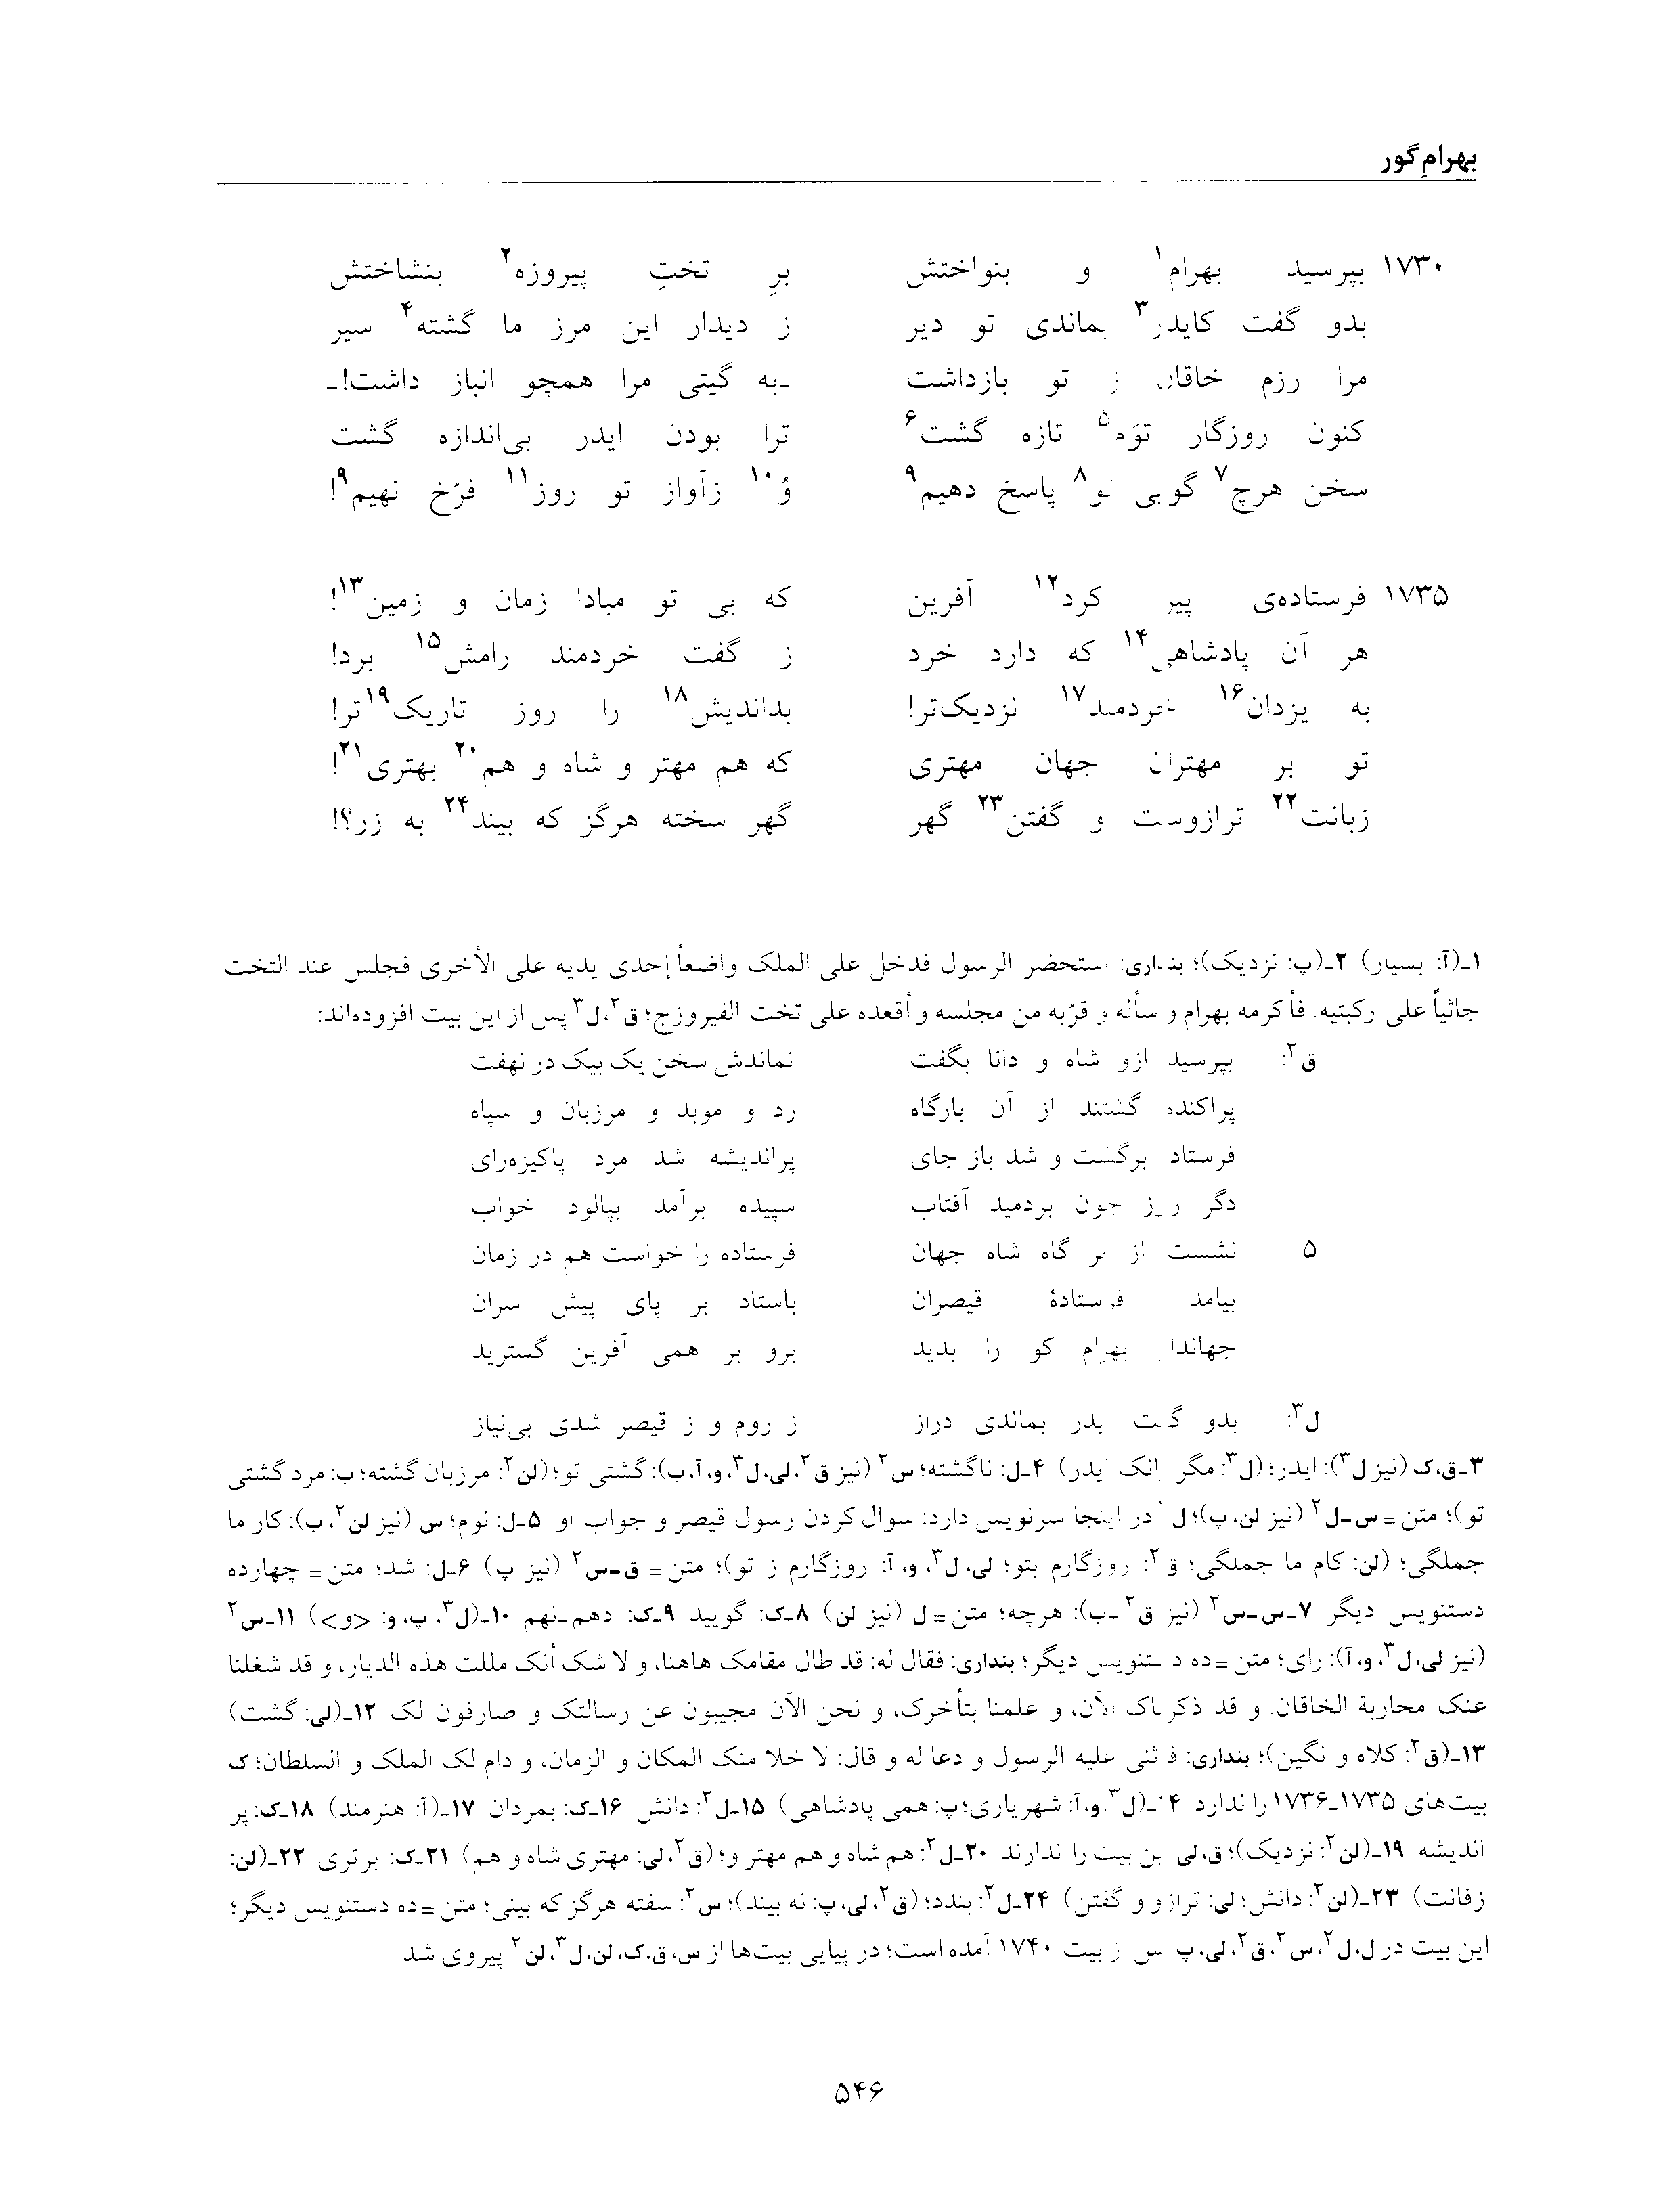 بهرامِ گور
۱۷۳۰ بپرسید بهرام۱ و بنواختش برِ تختِ پیروزه۲ بنشاختش
بدو گفت کایدر۳ بماندی تو دیر ز دیدار این مرز ما گشته۴ سیر
مرا رزم خاقان ز تو بازداشت ـ به گیتی مرا همچو انباز داشت!ـ
کنون روزگار توَم۵ تازه گشت۶ ترا بودن ایدر بی‌اندازه گشت
سخن هرچ۷ گویی تو۸ پاسخ دهیم۹ وُ۱۰ زآواز تو روز۱۱ فرّخ نهیم۹!
۱۷۳۵ فرستاده‌ی پیر کرد۱۲ آفرین که بی تو مبادا زمان و زمین۱۳!
هر آن پادشاهی۱۴ که دارد خرد ز گفت خردمند رامش۱۵ برد!
به یزدان۱۶ خردمند۱۷ نزدیک‌تر! بداندیش۱۸ را روز تاریک۱۹تر!
تو بر مهتران جهان مهتری که هم مهتر و شاه و هم۲۰ بهتری۲۱!
زبانت۲۲ ترازوست و گفتن۲۳ گهر گهر سخته هرگز که بیند۲۴ به زر؟!
۱ـ(آ: بسیار) ۲ـ(پ: نزدیک)؛ بنداری: ستحضر الرسول فدخل علی الملک واضعاً إحدی یدیه علی الأخری فجلس عند التخت
جاثیاً علی رکبتیه. فأکرمه بهرام و سأله و قرّبه من مجلسه و أقعده علی تخت الفیروزج؛ ق۲، ل۳ پس از این بیت افزوده‌اند:
ق۲: بپرسید ازو شاه و دانا بگفت نماندش سخن یک بیک در نهفت
پراکنده گشتند از آن بارگاه رد و موبد و مرزبان و سپاه
فرستاد برگشت و شد باز جای پراندیشه شد مرد پاکیزه‌رای
دگر روز چون بردمید آفتاب سپیده برآمد بپالود خواب
۵ نشست از بر گاه شاه جهان فرستاده را خواست هم در زمان
بیامد فرستادهٔ قیصران باستاد بر پای پیش سران
جهاندار بهرام کو را بدید برو بر همی آفرین گسترید
ل۳: بدو گفت بدر بماندی دراز ز روم و ز قیصر شدی بی‌نیاز
۳ـ ق، ک (نیز ل۳): ایدر؛ (ل۳: مگر انک ایدر) ۴ـ ل: ناگشته؛ س۲ (نیز ق۲، لی، ل۳، و، آ، ب): گشتی تو؛ (لن۲: مرزبان گشته؛ ب: مرد گشتی
تو)؛ متن = س ـ ل۲ (نیز لن، پ)؛ ل در اینجا سرنویس دارد: سوال کردن رسول قیصر و جواب او ۵ـ ل: نوم؛ س (نیز لن۲، ب): کار ما
جملگی؛ (لن: کام ما جملگی؛ ق۲: روزگارم بتو؛ لی، ل۳، و، آ: روزگارم ز تو)؛ متن = ق ـ س۲ (نیز پ) ۶ـ ل: شد؛ متن = چهارده
دستنویس دیگر ۷ـ س ـ س۲ (نیز ق۲ ـ ب): هرچه؛ متن = ل (نیز لن) ۸ـ ک: گویید ۹ـ ک: دهم ـ نهم ۱۰ـ(ل۳، پ، و: <و>) ۱۱ـ س۲
(نیز لی، ل۳، و، آ): رای؛ متن = ده دستنویس دیگر؛ بنداری: فقال له: قد طال مقامک هاهنا، و لا شک أنک مللت هذه الدیار، و قد شغلنا
عنک محاربة الخاقان. و قد ذکرناک الآن، و علمنا بتأخرک، و نحن الآن مجیبون عن رسالتک و صارفون لک ۱۲ـ(لی: گشت)
۱۳ـ(ق۲: کلاه و نگین)؛ بنداری: فأثنی علیه الرسول و دعا له و قال: لا خلا منک المکان و الزمان، و دام لک الملک و السلطان؛ ک
بیت‌های ۱۷۳۵ـ۱۷۳۶ را ندارد ۱۴ـ(ل۳، و، آ: شهریاری؛ پ: همی پادشاهی) ۱۵ـ ل۲: دانش ۱۶ـ ک: بمردان ۱۷ـ(آ: هنرمند) ۱۸ـ ک: پر
اندیشه ۱۹ـ(لن۲: نزدیک)؛ ق، لی این بیت را ندارند ۲۰ـ ل۲: هم شاه و هم مهتر و؛ (ق۲، لی: مهتری شاه و هم) ۲۱ـ ک: برتری ۲۲ـ(لن:
زفانت) ۲۳ـ(لن۲: دانش؛ لی: ترازو و گفتن) ۲۴ـ ل۲: بندد؛ (ق۲، لی، پ: نه بیند)؛ س۲: سفته هرگز که بینی؛ متن = ده دستنویس دیگر؛
این بیت در ل، ل۲، س۲، ق۲، لی، پ پس از بیت ۱۷۴۰ آمده است؛ در پیایی بیت‌ها از س، ق، ک، لن، ل۳، لن۲ پیروی شد
۵۴۶